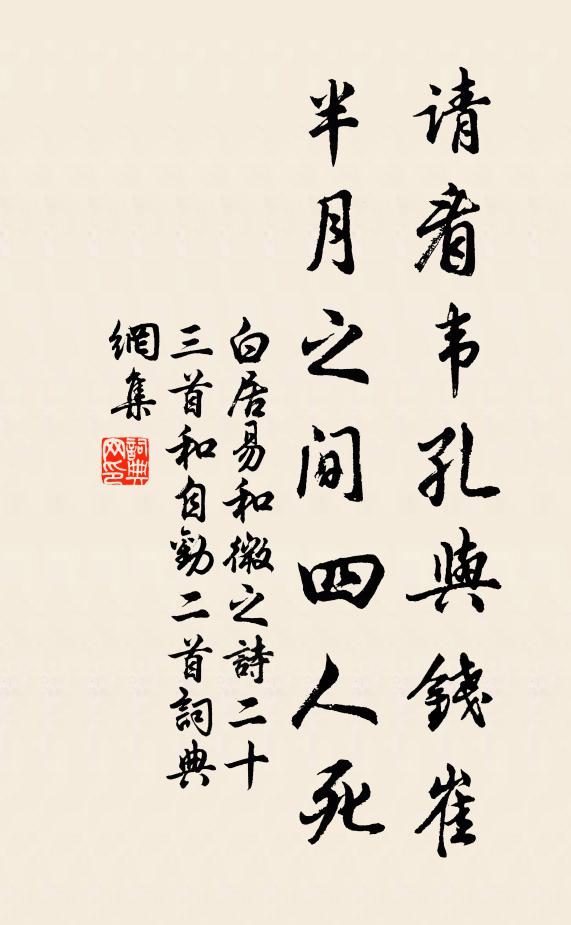 请看韦孔與錢崔
半月之间四人死
白居易和微之詩二十
三首和自勸二首詞典
網集
詞典
网印